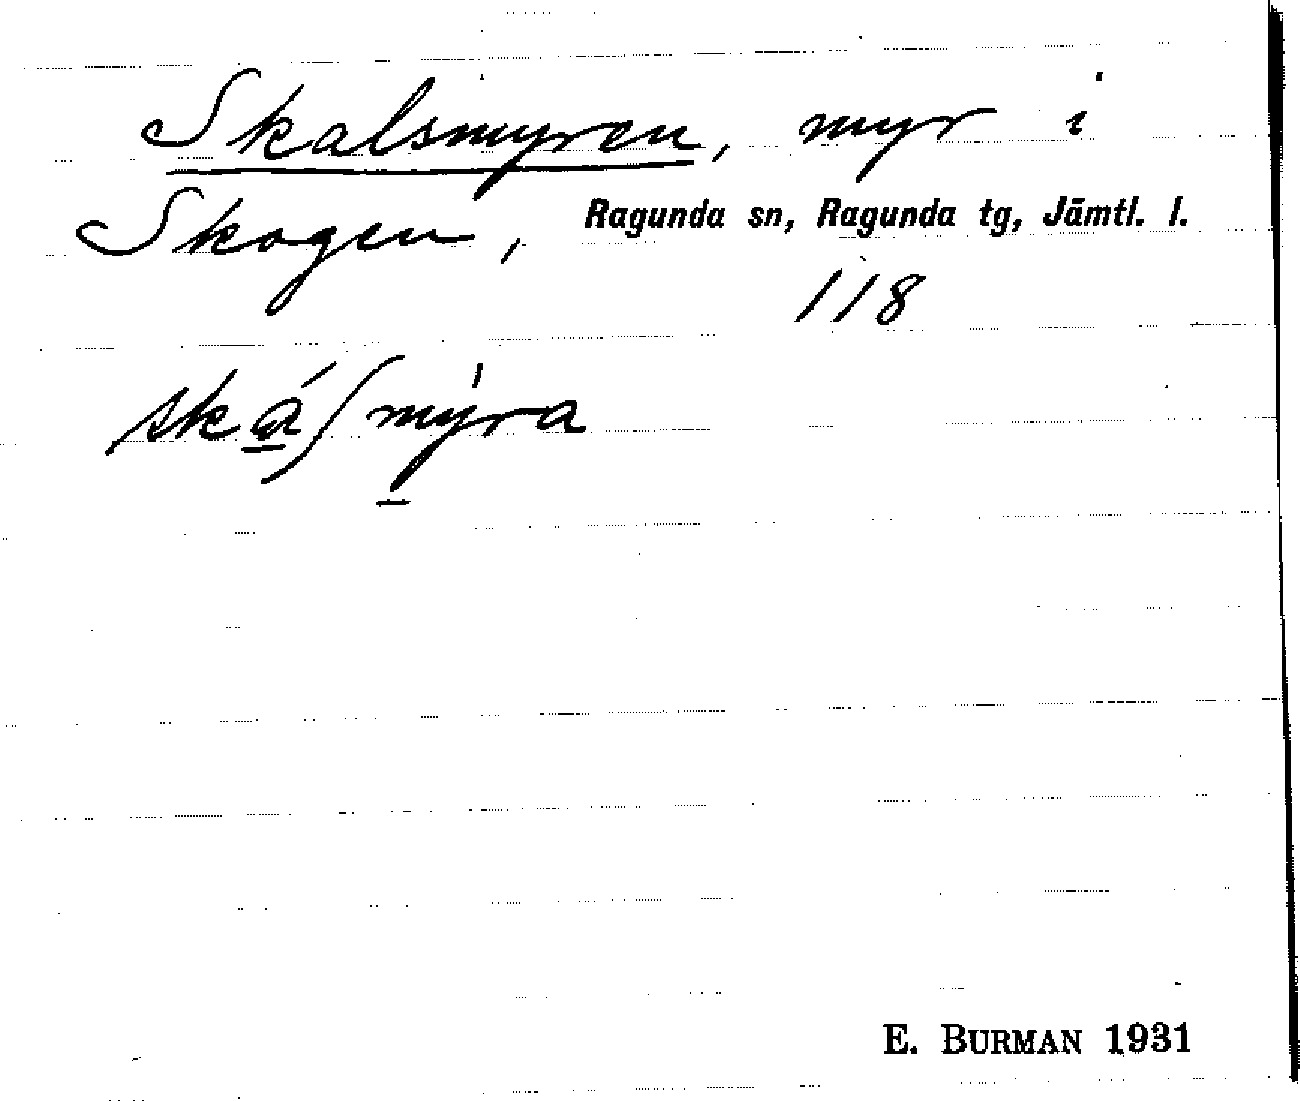 Skalsmyren, myr i
Skogen, Ragunda sn, Ragunda tg, Jämtl. l.
118
ská̲ʃmy̲̍ra
E. BURMAN 1931